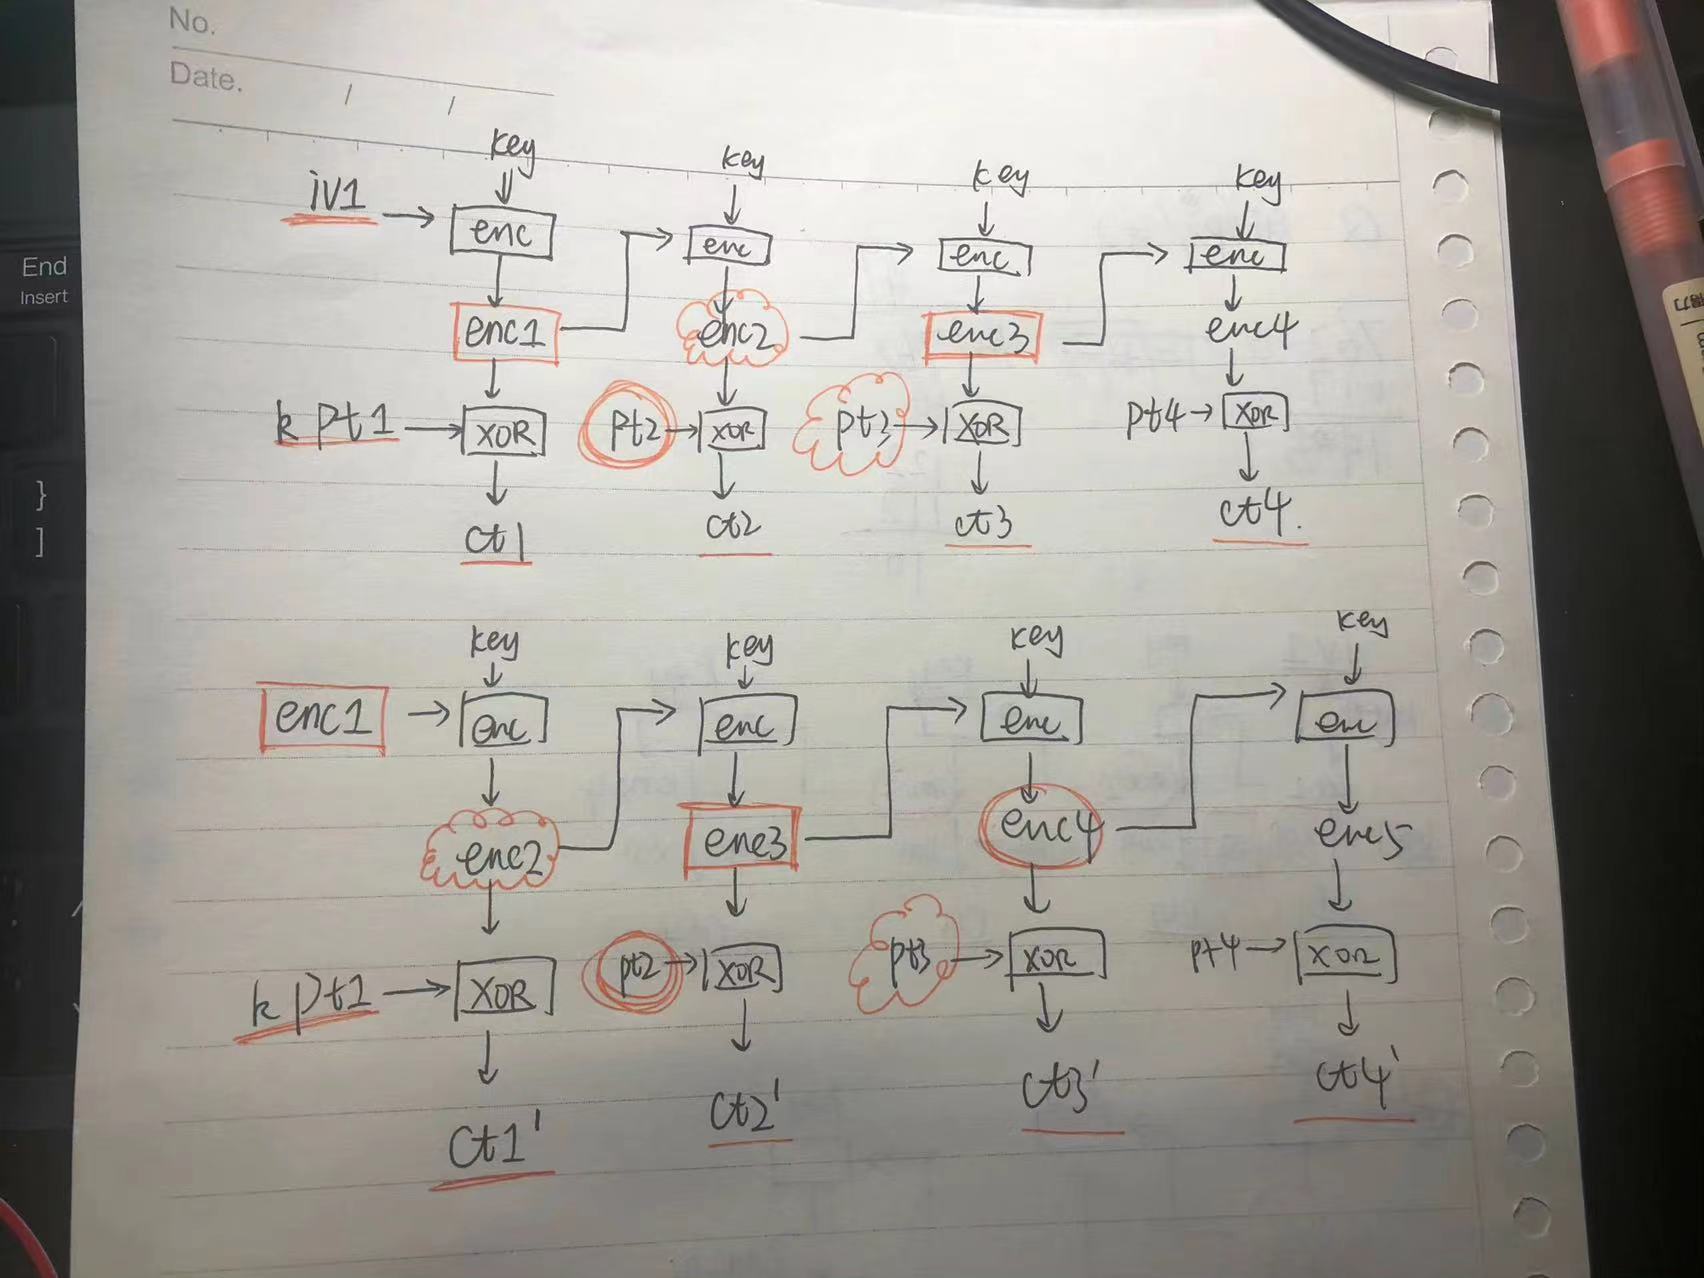 No.
Date. / /
key key key key
iv1 enc enc enc enc
enc1 enc2 enc3 enc4
k pt1 XOR pt2 XOR pt3 XOR pt4 XOR
ct1 ct2 ct3 ct4.
key key key key
enc1 enc enc enc enc
enc2 enc3 enc4 enc5
k pt1 XOR pt2 XOR pt3 XOR pt4 XOR
ct1' ct2' ct3' ct4'
End
Insert
}
]